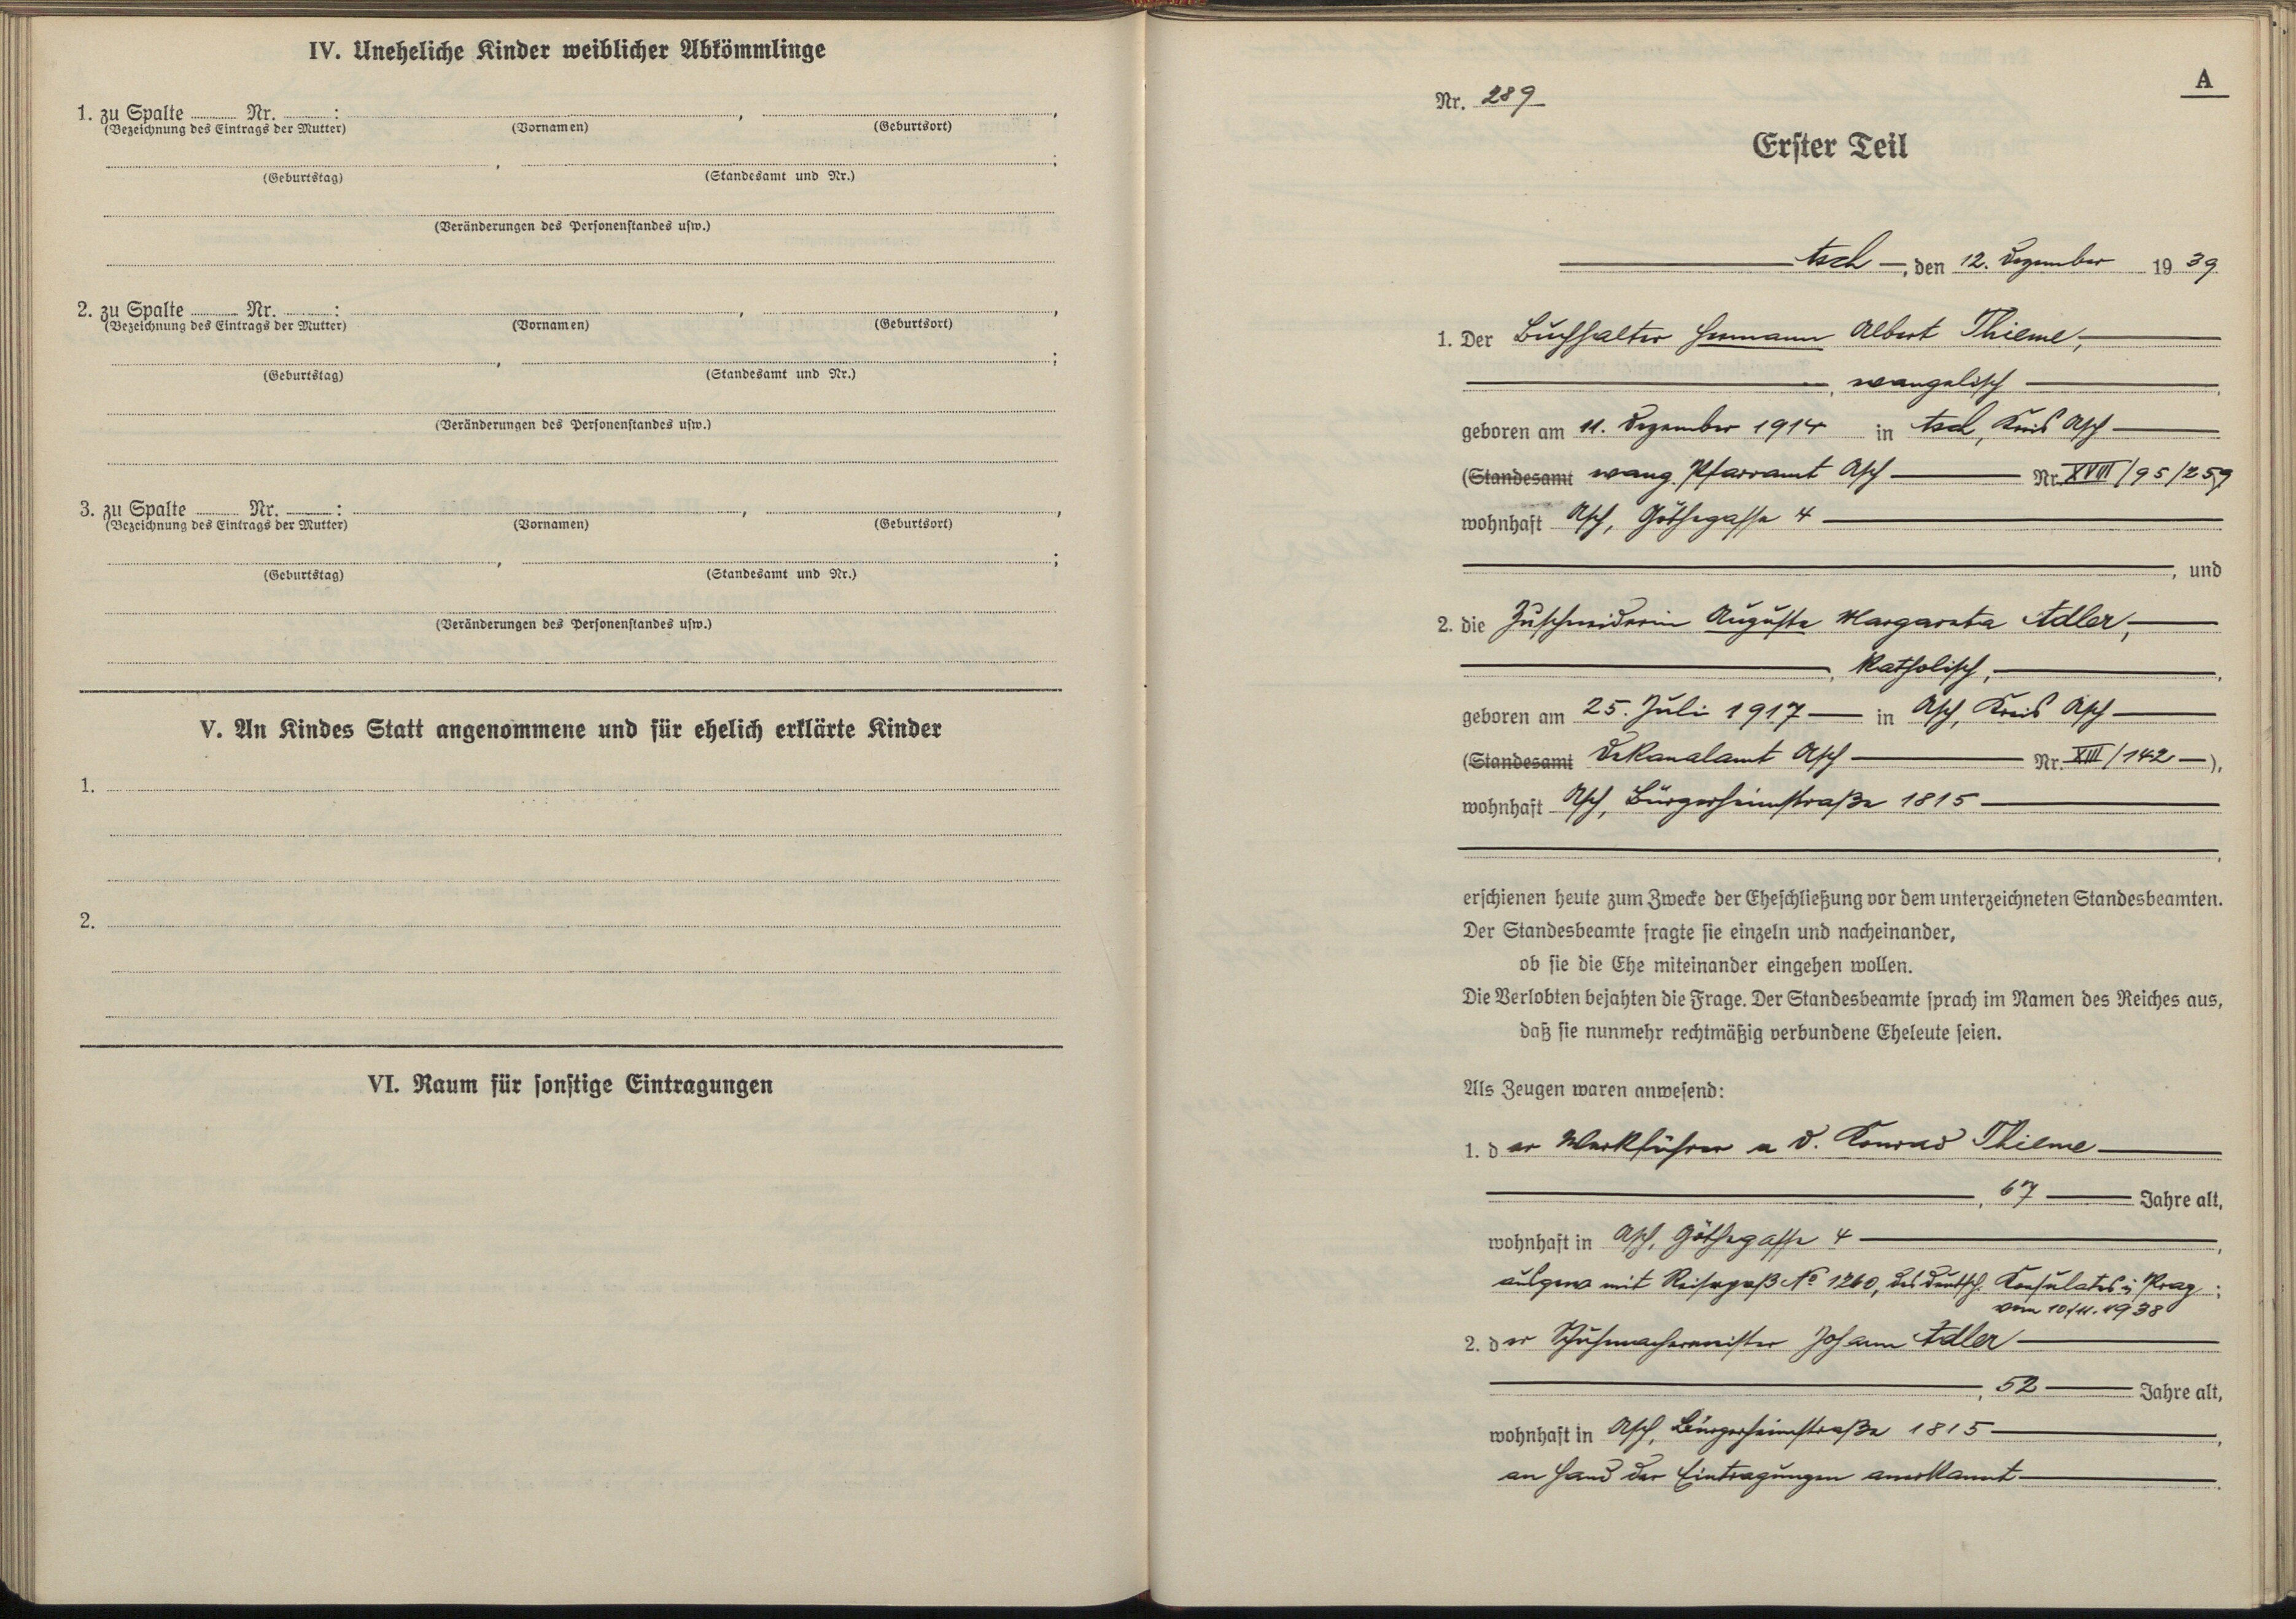 IV. Uneheliche Kinder weiblicher Abkömmlinge
1. zu Spalte ........ Nr. ........ :
(Bezeichnung des Eintrags der Mutter) (Vornamen) (Geburtsort)
(Geburtstag) (Standesamt und Nr.)
(Veränderungen des Personenstandes usw.)
2. zu Spalte ........ Nr. ........ :
(Bezeichnung des Eintrags der Mutter) (Vornamen) (Geburtsort)
(Geburtstag) (Standesamt und Nr.)
(Veränderungen des Personenstandes usw.)
3. zu Spalte ........ Nr. ........ :
(Bezeichnung des Eintrags der Mutter) (Vornamen) (Geburtsort)
(Geburtstag) (Standesamt und Nr.)
(Veränderungen des Personenstandes usw.)
V. An Kindes Statt angenommene und für ehelich erklärte Kinder
1.
2.
VI. Raum für sonstige Eintragungen
A
Nr. 289
Erster Teil
Asch, den 12. Dezember 1939
1. Der Buchhalter Hermann Albert Thieme,
, evangelisch
geboren am 11. Dezember 1914 in Asch, Kreis Asch
(Standesamt evang. Pfarramt Asch Nr. XVIII/95/259
wohnhaft Asch, Göthegasse 4
, und
2. die Zuschneiderin Auguste Margareta Adler,
, katholisch,
geboren am 25. Juli 1917 in Asch, Kreis Asch
(Standesamt Dekanalamt Asch Nr. XIII/142),
wohnhaft Asch, Bürgerheimstraße 1815
erschienen heute zum Zwecke der Eheschließung vor dem unterzeichneten Standesbeamten.
Der Standesbeamte fragte sie einzeln und nacheinander,
ob sie die Ehe miteinander eingehen wollen.
Die Verlobten bejahten die Frage. Der Standesbeamte sprach im Namen des Reiches aus,
daß sie nunmehr rechtmäßig verbundene Eheleute seien.
Als Zeugen waren anwesend:
1. der Werkführer a. D. Konrad Thieme
, 67 Jahre alt,
wohnhaft in Asch, Göthegasse 4,
ausgew. mit Reisepaß No 1260, des deutsch. Konsulates i. Prag ;
vom 10/11. 1938
2. der Schuhmachermeister Johann Adler
, 52 Jahre alt,
wohnhaft in Asch, Bürgerheimstraße 1815,
an Hand der Eintragungen anerkannt.